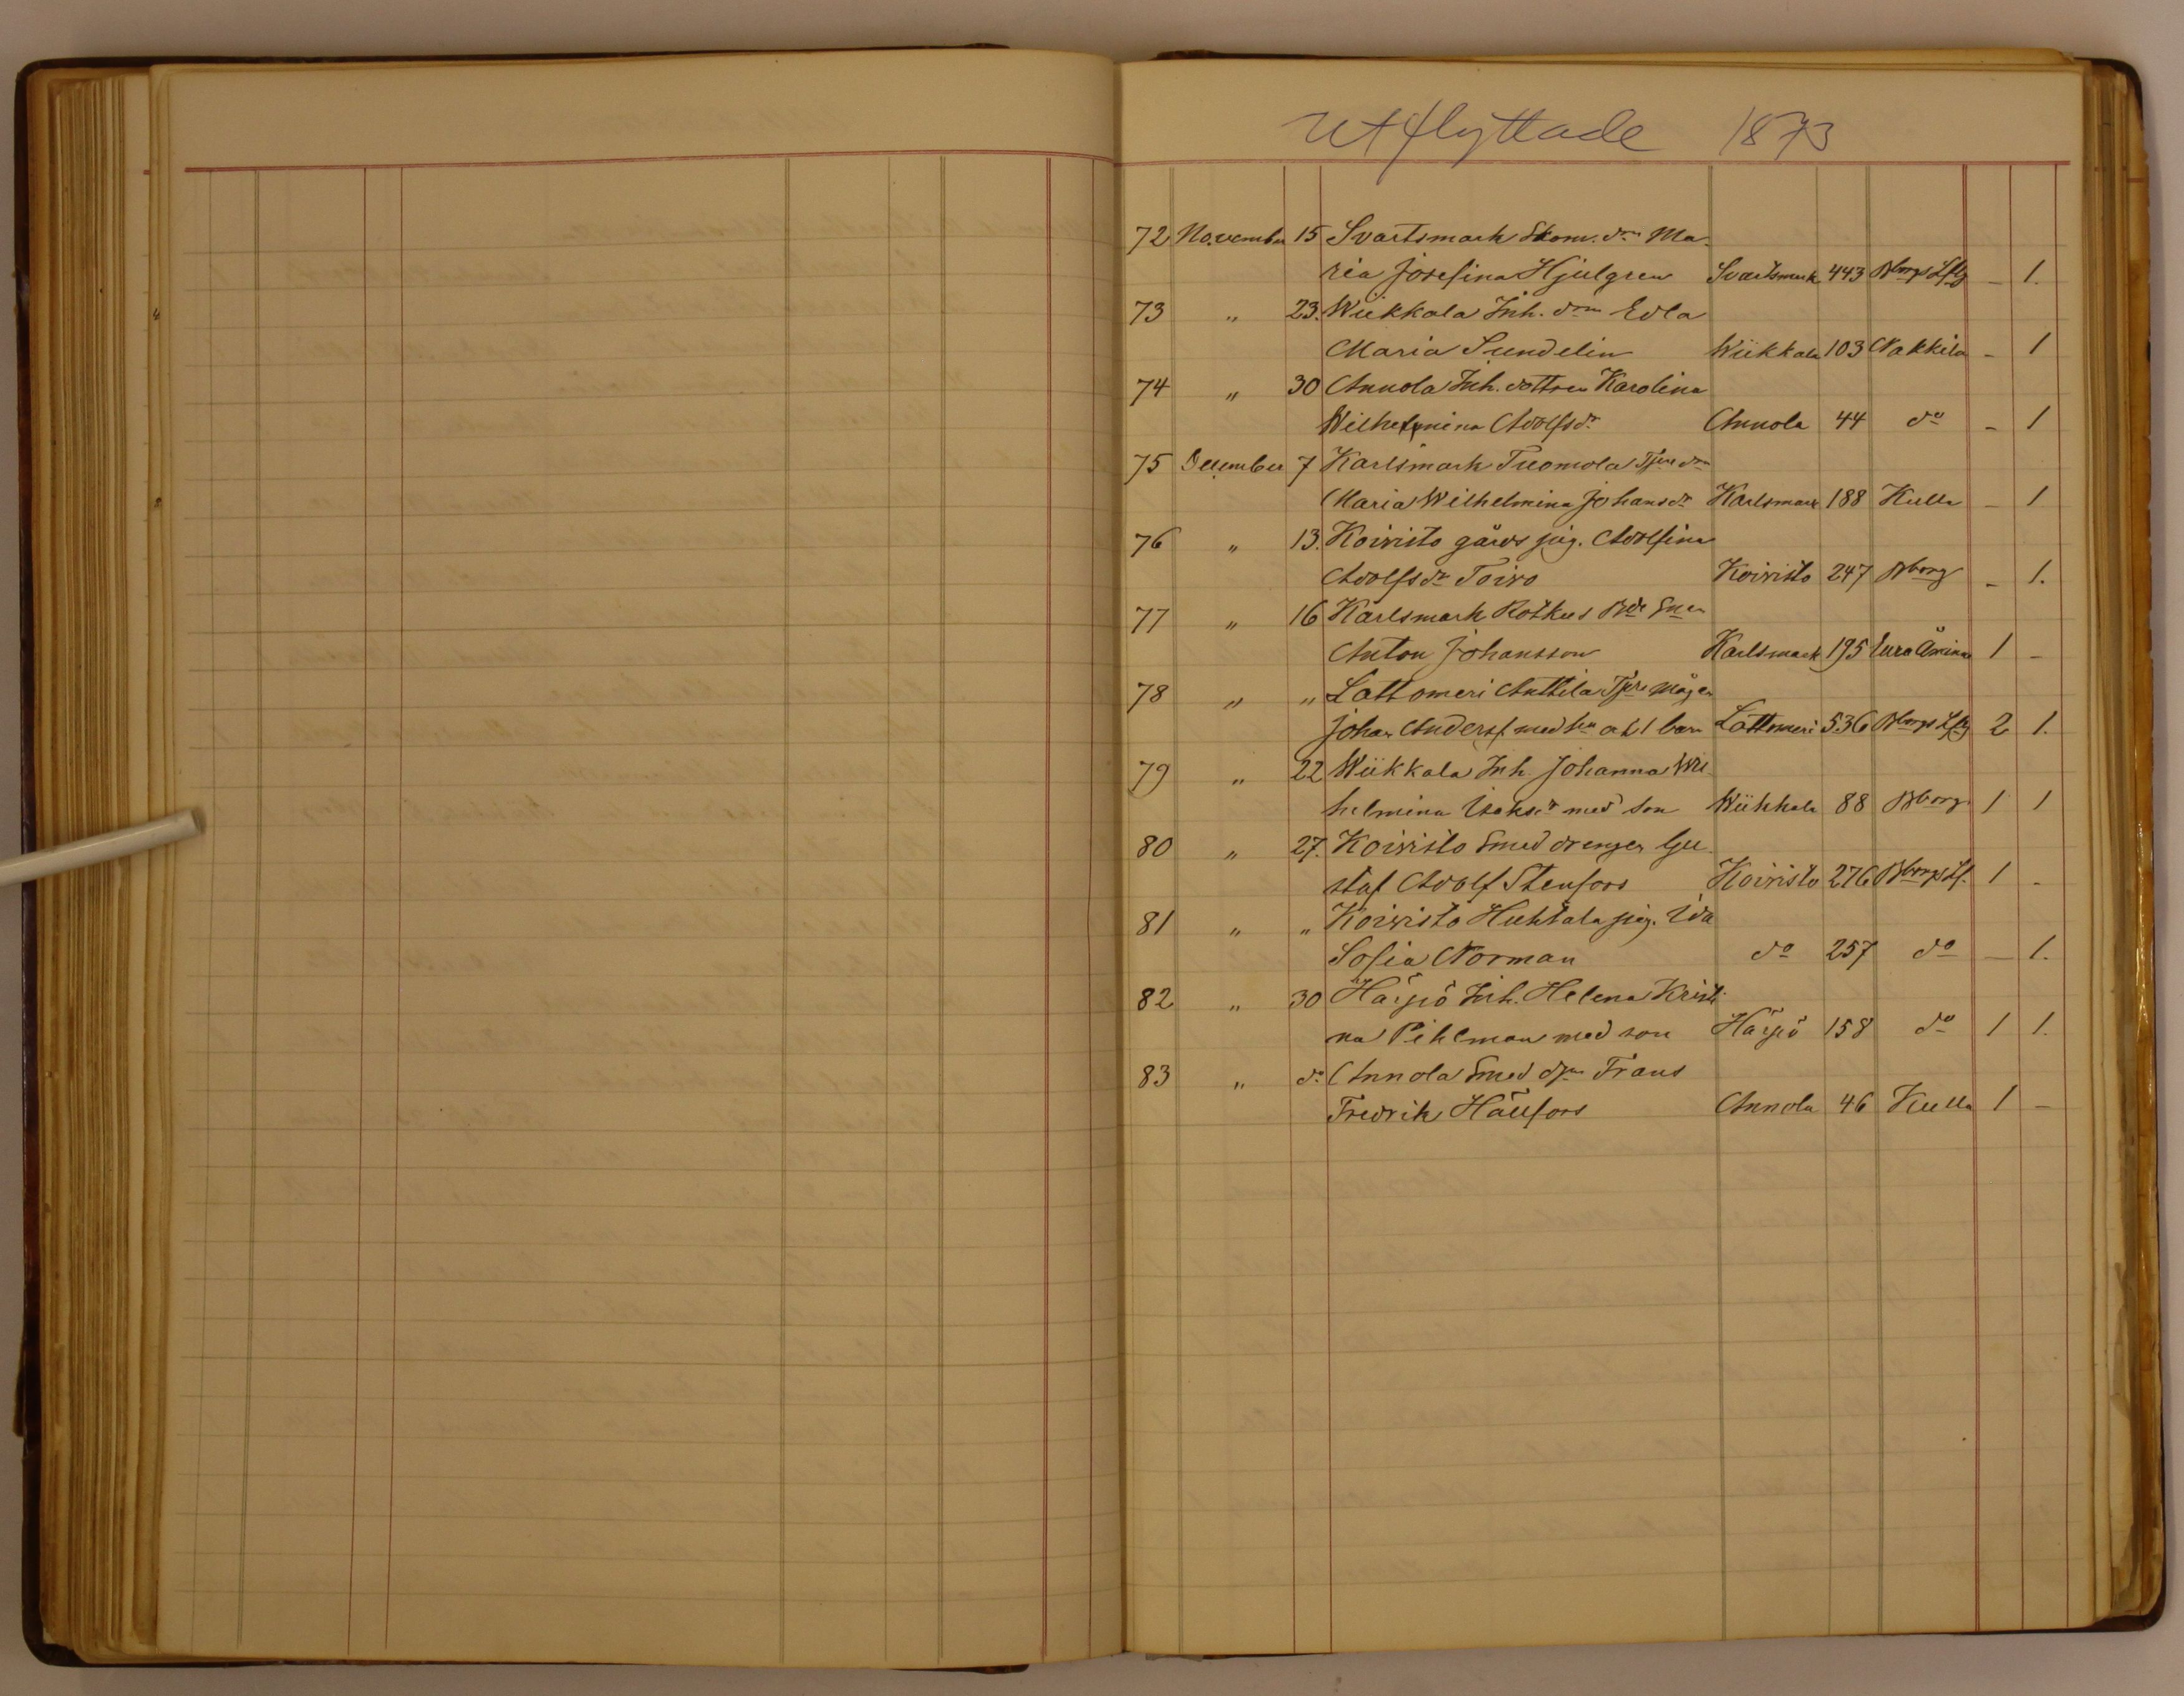 Utflyttade 1873
72 November 15 Svartsmark Skom. drn Ma-
ria Josefina Hjulgren Svartsmark 443 Bborgs Lfg - 1.
73 " 23. Wiikkala Inh. drn Edla
Maria Sundelin Wiikkala 103 Nakkila - 1
74 " 30 Annola Inh. dottren Karolina
Wilhelmina Adolfsdr Annola 44 do - 1
75 December 7 Karlsmark Tuomola Tjen drn
Maria Wilhelmina Johansdr Karlsmark 188 Kulla - 1
76 " 13. Koivisto gårds pig. Adolfina
Adolfsdr Toivo Koivisto 247 Bborg - 1.
77 " 16 Karlsmark Rotkus Bde
Anton Johansson Karlsmark 195 Eura Åminne 1 -
78 " " Lattomeri Anttila Tjen mågen
Johan Andersf. med hu o 1 barn Lattomeri 536 Bborgs Lfg 2 1.
79 " 22 Wiikkala Inh. Johanna Wil-
helmina Isaksdr med son Wiikkala 88 Bborg 1 1
80 " 27. Koivisto Smed drengen Gu-
staf Adolf Stenfors Koivisto 276 Bborgs Lf. 1 -
81 " " Koivisto Huhtala pig. Ida
Sofia Norman do 257 do - 1.
82 " 30 Härpö Inh. Helena Kristi-
na Pihlman med son Härpö 158 do 1 1.
83 " do Annola Smed dgn Frans
Fredrik Häufors Annola 46 Kulla 1 -